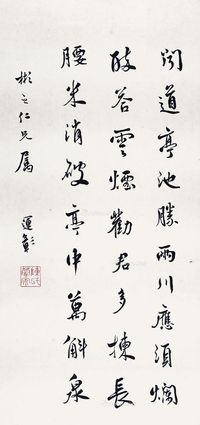 聞道亭池勝兩川應須爛
醉答雲煙勸君多揀長
腰米消破亭中萬斛泉
彬之仁兄属
運彰